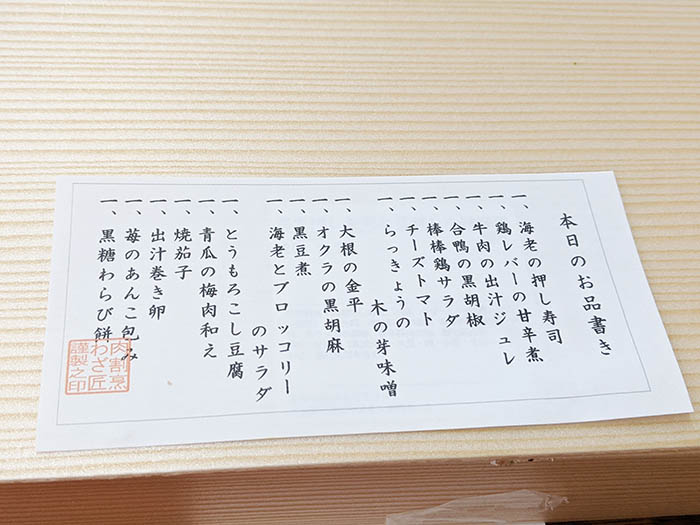 本日のお品書き
一、海老の押し寿司
一、鶏レバーの甘辛煮
一、牛肉の出汁ジュレ
一、合鴨の黒胡椒
一、棒棒鶏サラダ
一、チーズトマト
一、らっきょうの
木の芽味噌
一、大根の金平
一、オクラの黒胡麻
一、黒豆煮
一、海老とブロッコリー
のサラダ
一、とうもろこし豆腐
一、青瓜の梅肉和え
一、焼茄子
一、出汁巻き卵
一、苺のあんこ包み
一、黒糖わらび餅
肉割烹
わざ匠
謹製之印